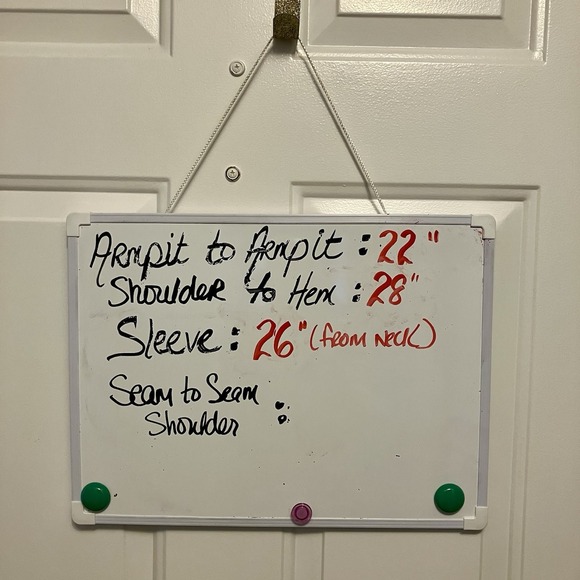 Armpit to Armpit : 22"
Shoulder to Hem : 28"
Sleeve : 26" (from neck)
Seam to Seam
Shoulder :